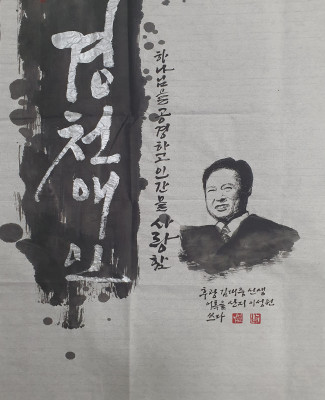 경천애인
하나님을 공경하고 인간을 사랑함
후광 김대중 선생
어록을 산지 이성현
쓰다